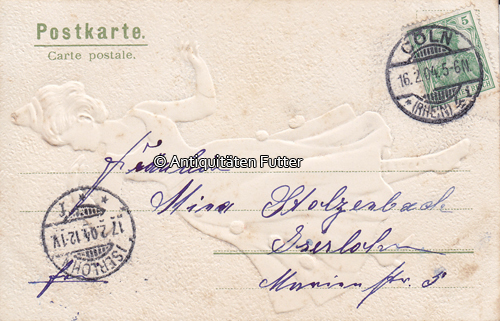 Postkarte.
Carte postale.
5
CÖLN
16.2.04.5-6N.
* (RHEIN) 1 *
© Antiquitäten Futter
Fräulein
Mina Stolzenbach
Iserlohn
Marienstr. 5
* 1 *
17.2.04.12-1V.
ISERLOHN